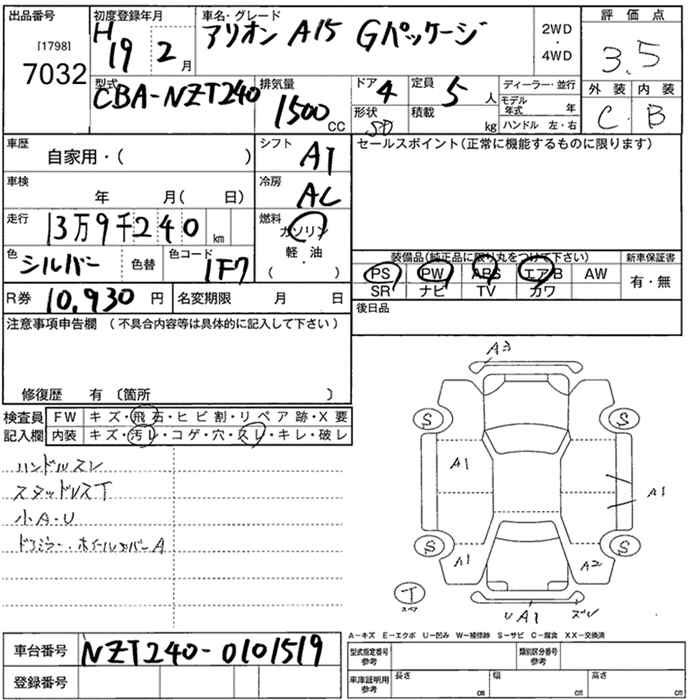 出品番号
[1798]
7032
初度登録年月
H 19 2 月
車名・グレード
アリオン A15 Gパッケージ
2WD
・
4WD
評価点
3.5
外装 内装
C B
型式
CBA-NZT240
排気量
1500 CC
ドア 4
定員 5 人
形状 SD
積載 kg
ディーラー・並行
モデル年式 年
ハンドル 左・右
車歴
自家用・( )
シフト AT
セールスポイント(正常に機能するものに限ります)
車検
年 月( 日)
冷房 AC
走行
13万9千240 km
燃料
ガソリン
軽・油
( )
色
シルバー
色替
色コード
1F7
装備品(純正品に限り丸をつけて下さい)
新車保証書
PS PW ABS エアB AW
SR ナビ TV カワ
有・無
R券 10,930 円
名変期限 月 日
後日品
注意事項申告欄 (不具合内容等は具体的に記入して下さい)
修復歴 有 〔箇所 〕
検査員
記入欄
FW キズ・飛石・ヒビ割・リペア跡・X要
内装 キズ・汚レ・コゲ・穴・スレ・キレ・破レ
ハンドルスレ
スタッドレスT
小A・U
ドアミラー・ホイールカバーA
A3
S S
A1
A1
S S
A1 A2
T
スペア
UA1 ズレ
A-キズ E-エクボ U-凹み W-補修跡 S-サビ C-腐食 XX-交換済
車台番号
NZT240-0101519
登録番号
型式指定番号
参考
類別区分番号
参考
車庫証明用
参考
長さ cm
幅 cm
高さ cm